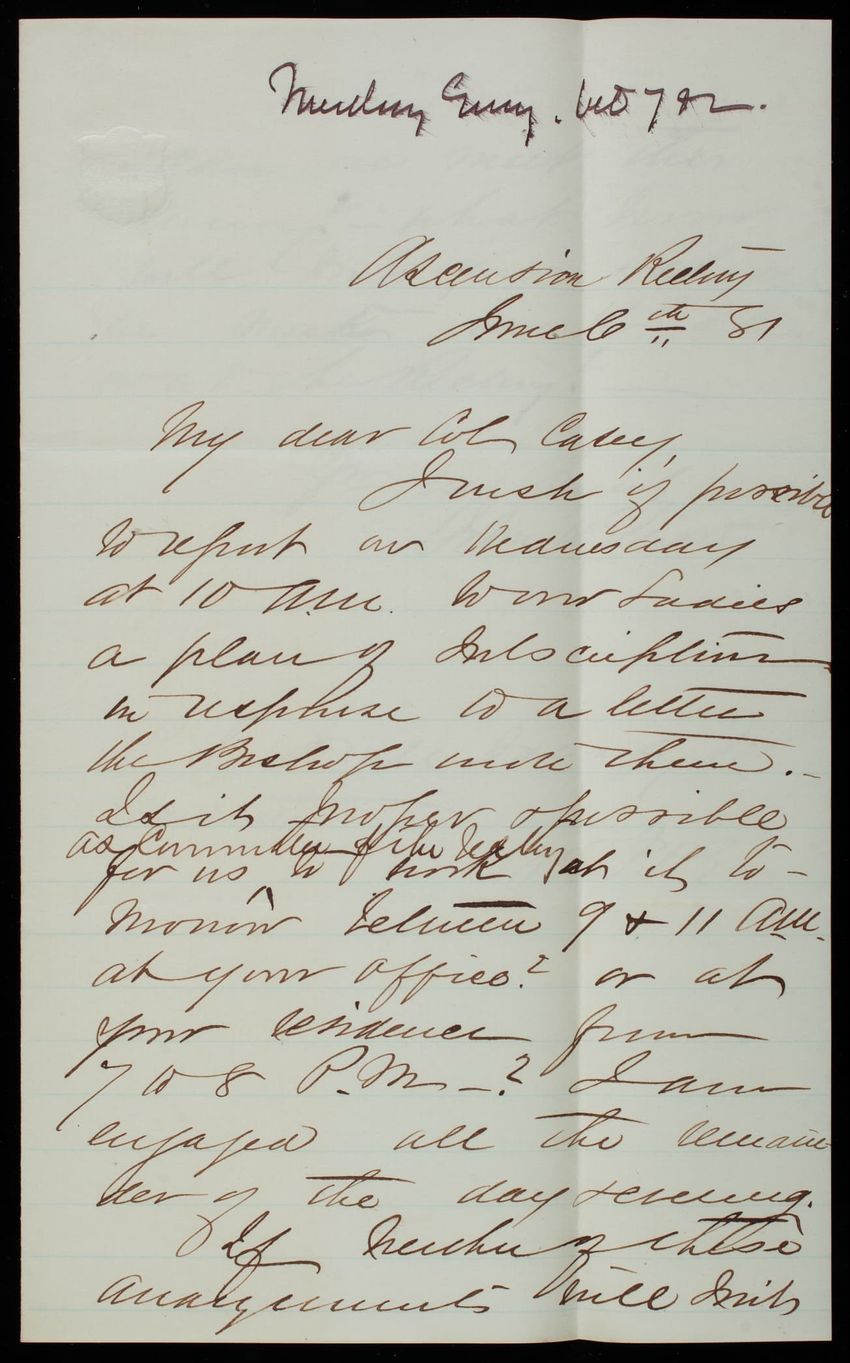 Tuesday Evng. Oct 7 82.
Ascension Rectory
June 6th 81
My dear Col Casey,
I wish if possible
to report on Wednesday
at 10 A.M. to our Ladies
a plan of Inscription
in response to a letter
the Bishop wrote them.-
Is it proper & possible
as Committee of the Vestry
for us to look at it to-
morrow between 9 & 11 A.M.
at your office? or at
your residence from
7 to 8 P.M.-? I am
engaged all the remain-
der of the day & evening.
If neither of these
arrangements will suit